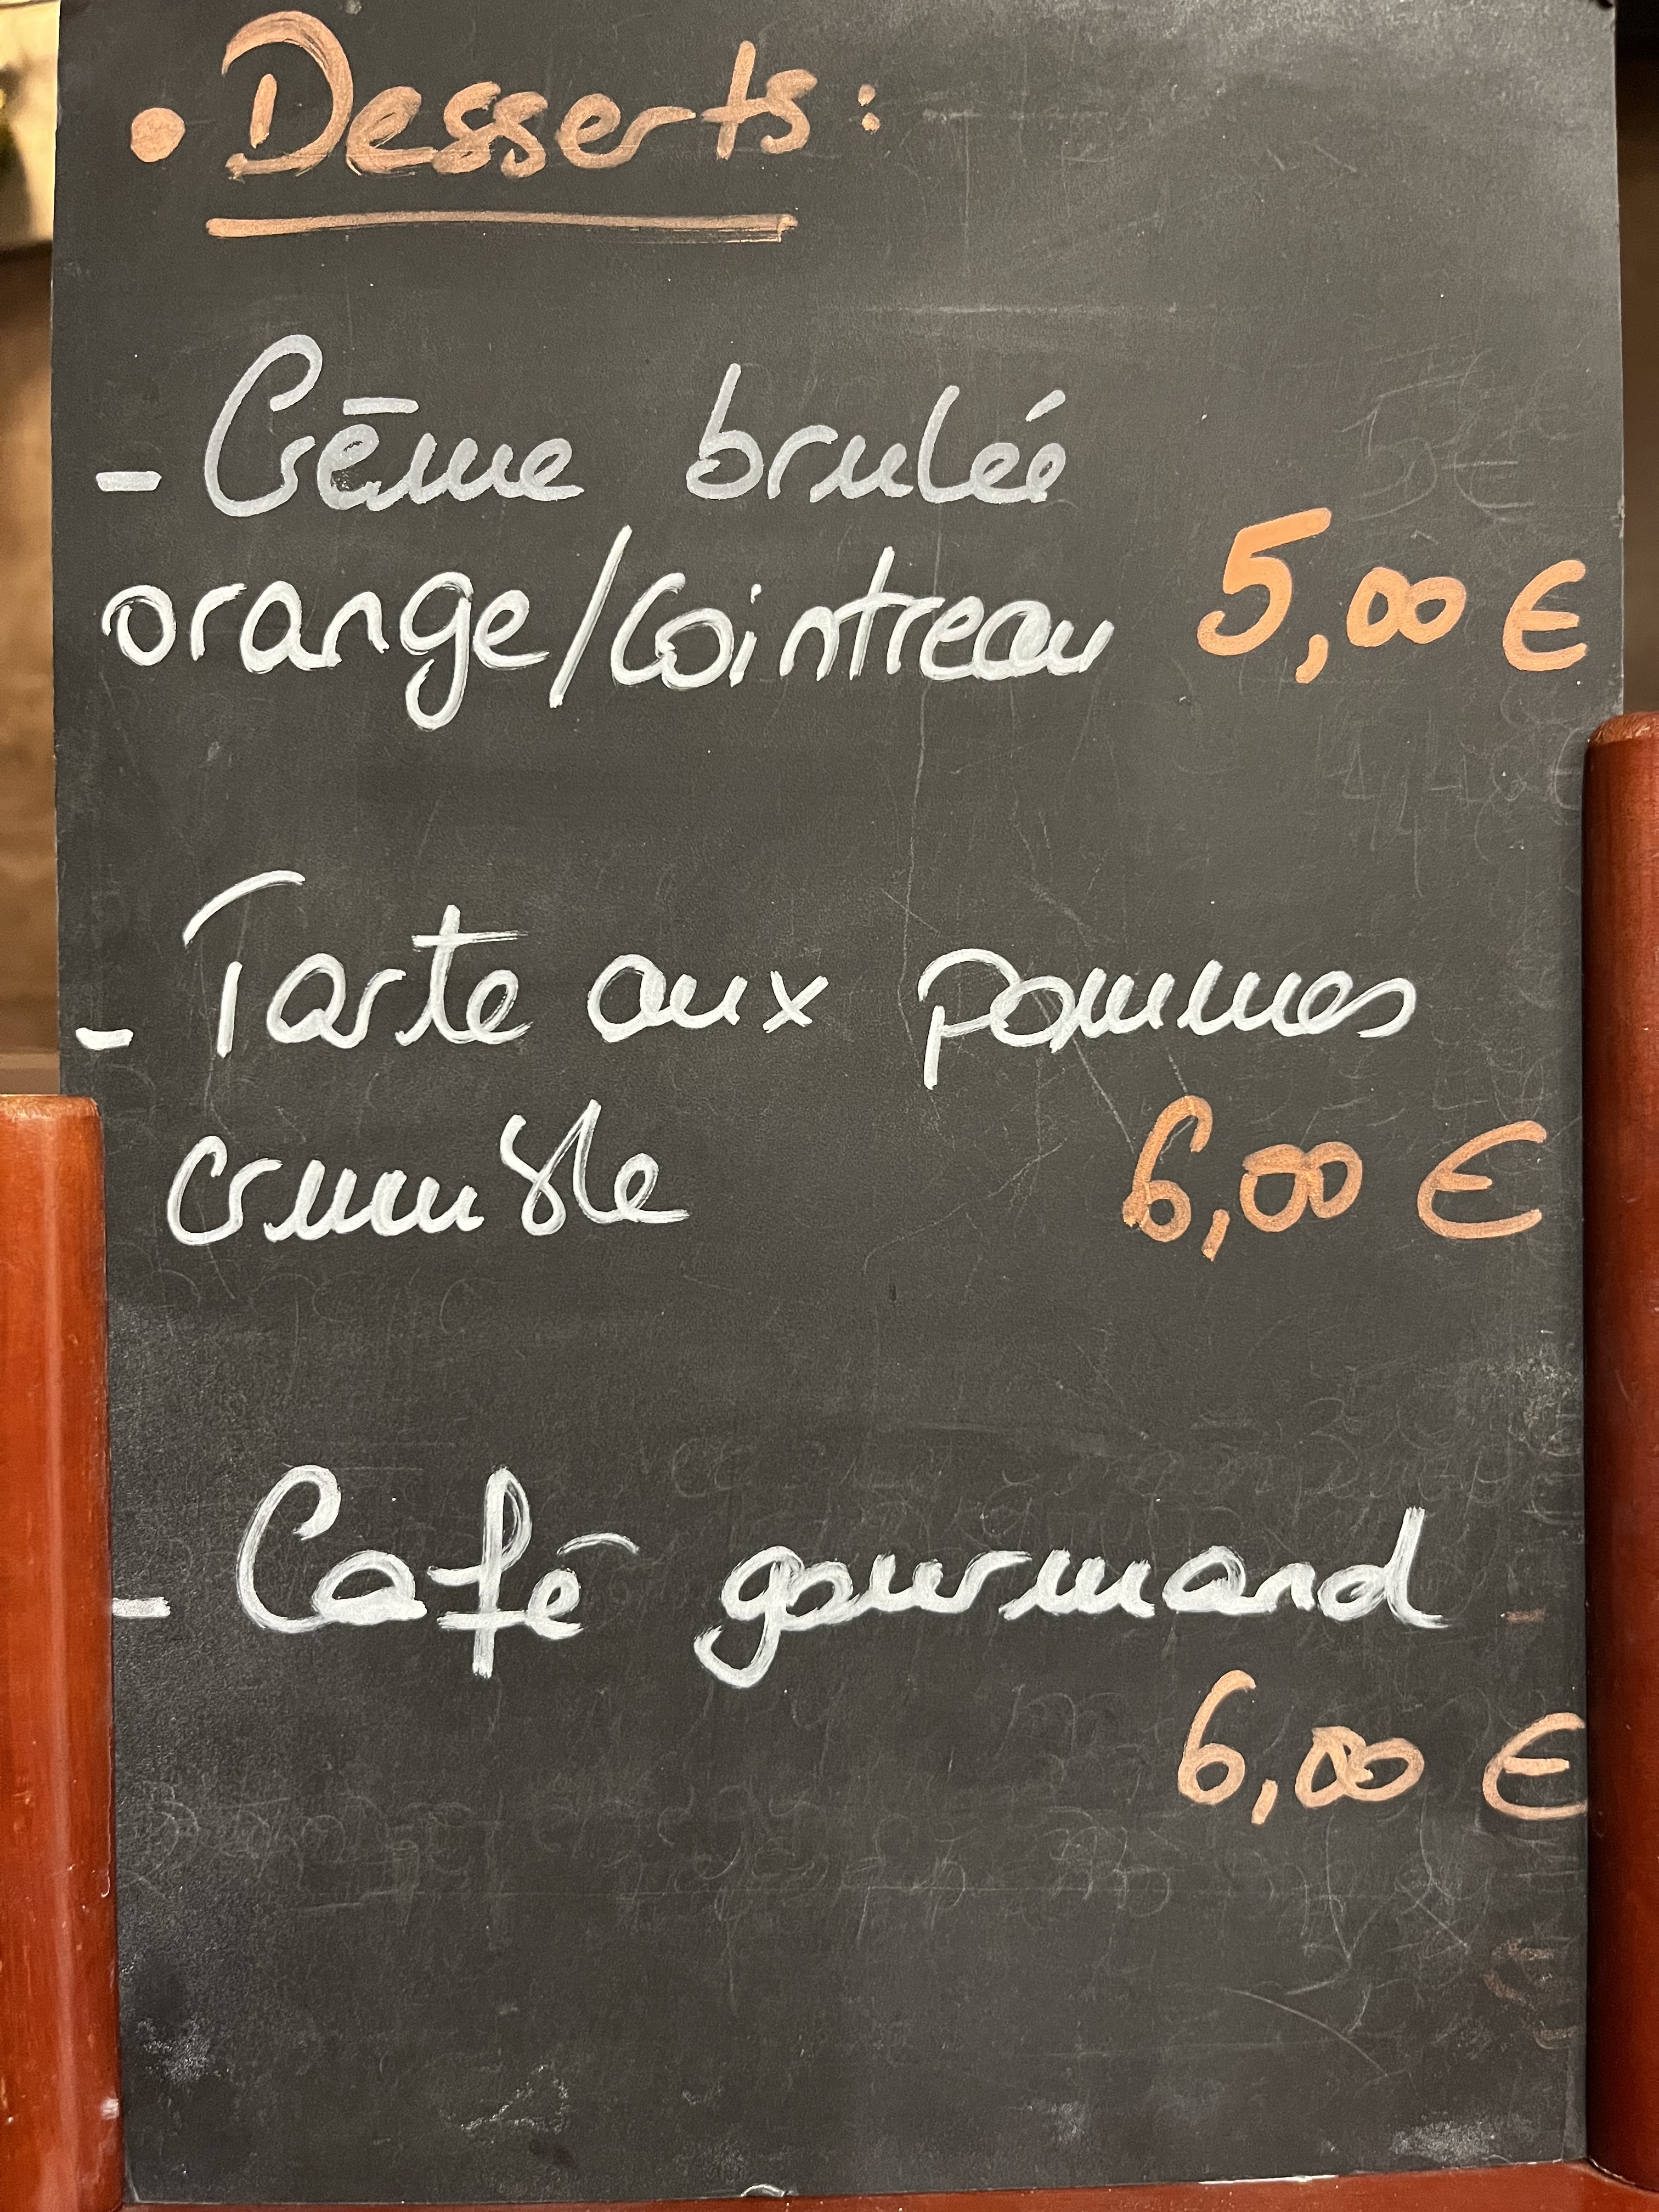 • Desserts :
- Crēme brulée
orange/Cointreau 5,00 €
- Tarte aux pommes
crumble 6,00 €
- Café gourmand
6,00 €